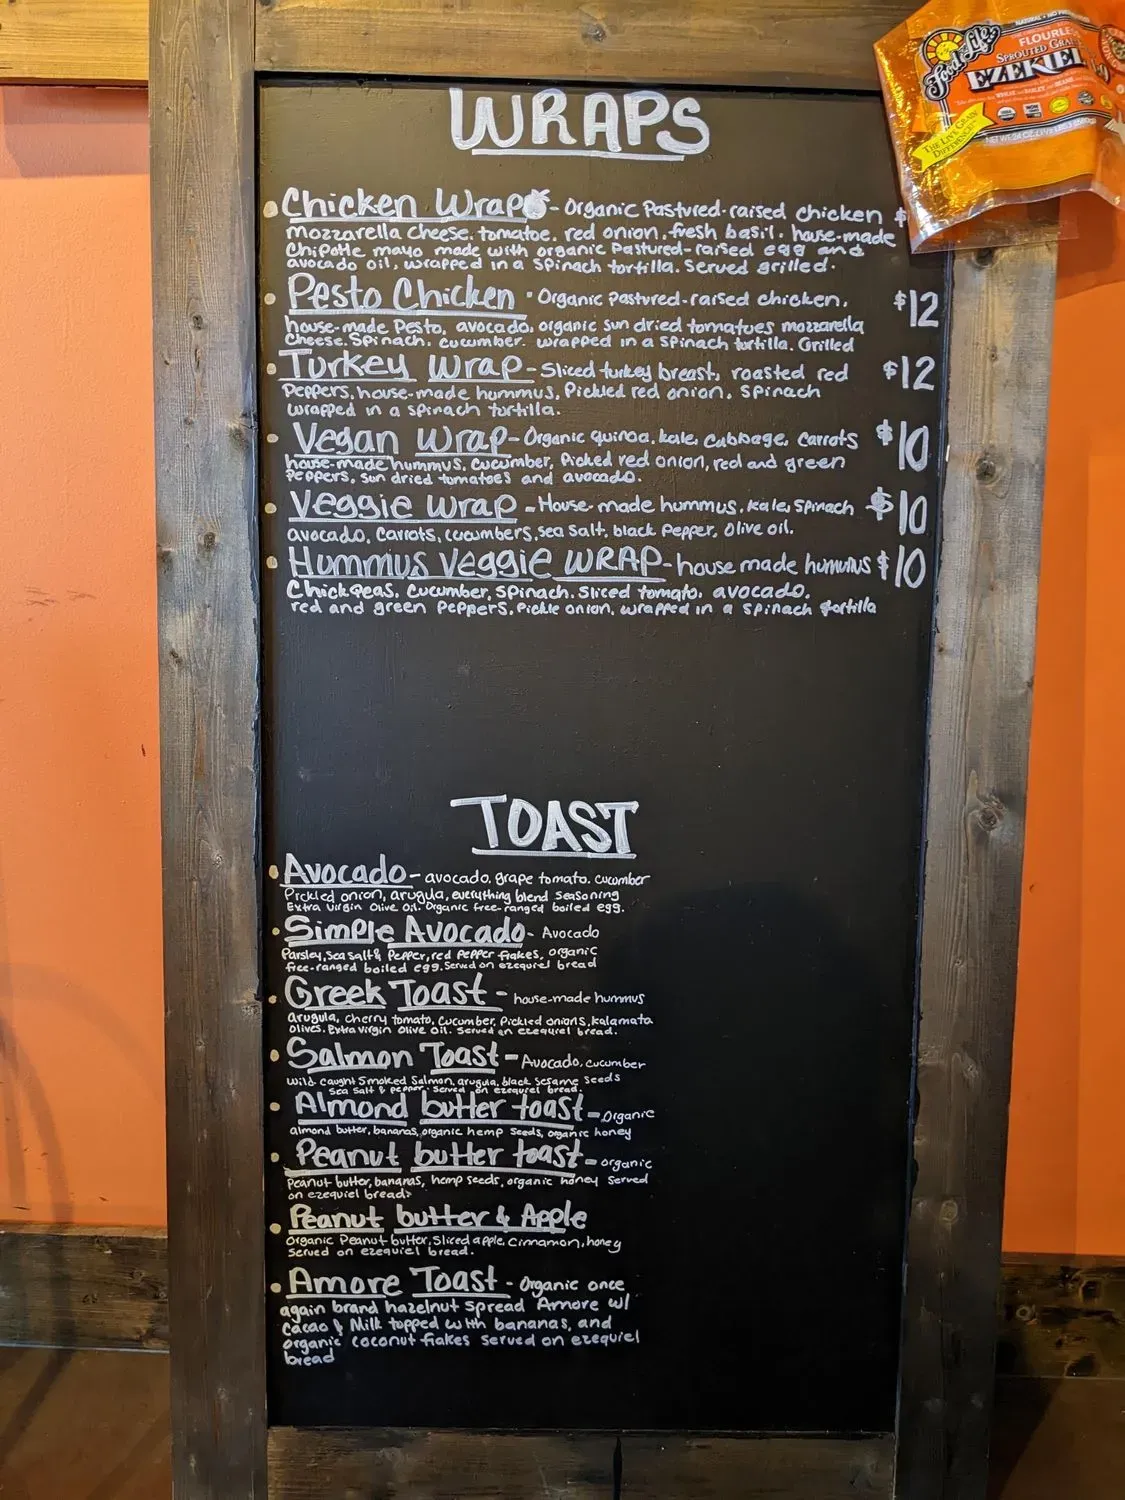 WRAPS
Food for Life
NATURAL
FLOURLESS
SPROUTED GRAIN
EZEKIEL
THE LIVE GRAIN
DIFFERENCE!
NET WT. 24 OZ.
Chicken Wrap - Organic Pastured-raised chicken $
mozzarella cheese, tomatoe, red onion, fresh basil, house-made
Chipotle mayo made with organic Pastured-raised egg and
avocado oil, wrapped in a spinach tortilla. Served grilled.
Pesto Chicken - Organic pastured-raised chicken, $12
house-made Pesto, avocado, organic sun dried tomatoes mozzarella
Cheese, Spinach, cucumber. wrapped in a spinach tortilla. Grilled
Turkey Wrap - Sliced turkey breast, roasted red $12
Peppers, house-made hummus, Pickled red onion, spinach
wrapped in a spinach tortilla.
Vegan Wrap - Organic quinoa, kale, cabbage, carrots $10
house-made hummus, cucumber, Picked red onion, red and green
Peppers, sun dried tomatoes and avocado.
Veggie Wrap - House-made hummus, kale, spinach $10
avocado, carrots, cucumbers, sea salt, black pepper, Olive oil.
Hummus Veggie WRAP - house made hummus $10
Chickpeas, cucumber, spinach, sliced tomato, avocado,
red and green peppers, Pickle onion, wrapped in a spinach tortilla
TOAST
Avocado - avocado, grape tomato, cucumber
Pickled onion, arugula, everything blend seasoning
Extra virgin Olive Oil. Organic free-ranged boiled egg.
Simple Avocado - Avocado
Parsley, Sea salt & Pepper, red pepper flakes, organic
free-ranged boiled egg. Served on ezequiel bread
Greek Toast - house-made hummus
arugula, cherry tomato, cucumber, Pickled onions, kalamata
olives. Extra virgin Olive Oil. Served on ezequiel bread.
Salmon Toast - Avocado, cucumber
Wild caught Smoked Salmon, arugula, black sesame seeds
Sea salt & pepper. Served on ezequiel bread.
Almond butter toast - Organic
almond butter, bananas, organic hemp seeds, organic honey
Peanut butter toast - organic
Peanut butter, bananas, hemp seeds, organic honey served
on ezequiel bread.
Peanut butter & Apple
Organic Peanut butter, Sliced apple, Cinnamon, honey
Served on ezequiel bread.
Amore Toast - Organic once
again brand hazelnut spread Amore w/
Cacao & Milk topped with bananas, and
organic coconut flakes served on ezequiel
bread